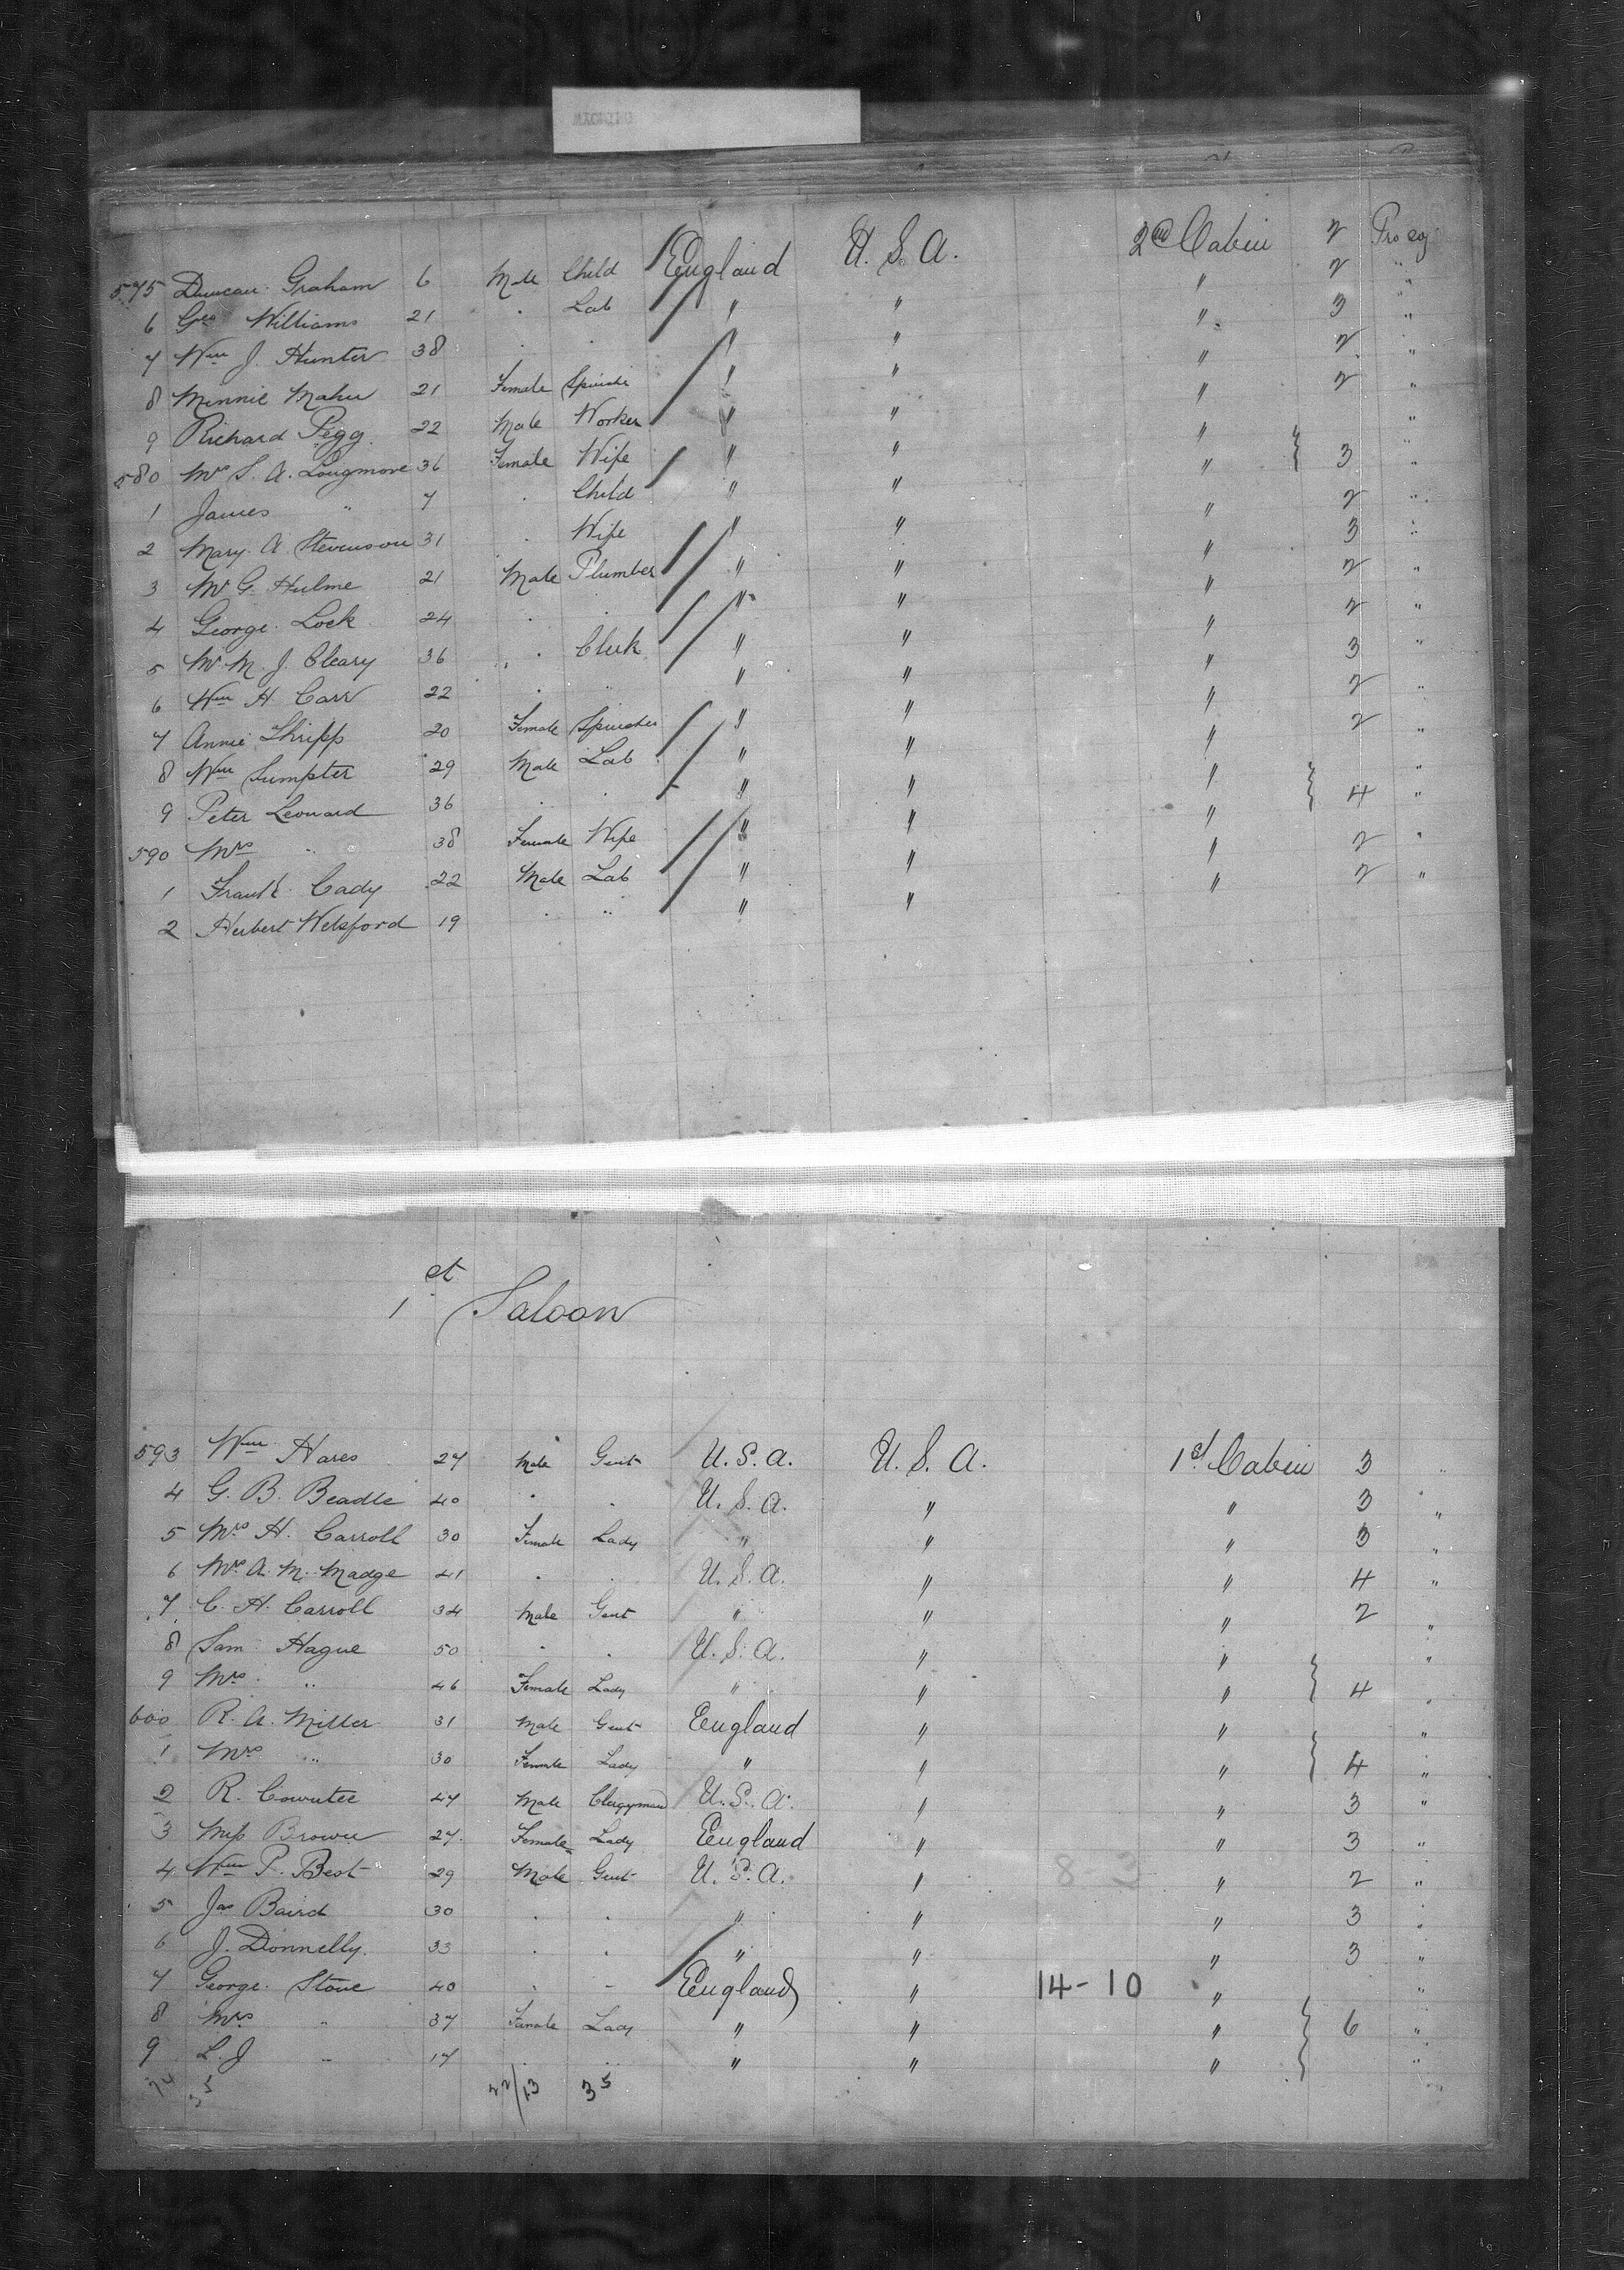 575 Duncan Graham 6 Male Child England U. S. A. 2nd Cabin 2 Pro soj
6 Geo Williams 21 . Lab " " " 2 "
7 Wm J. Hunter 38 . . " " " 3 "
8 Minnie Mahu 21 Female " " " 2 "
9 Richard Pegg. 22 Male Worker " " " 2 "
580 Mrs S. A. Longmore 36 Female Wife " " "
1 James " 7 . Child " " " 3 "
2 Mary. A. Stevenson 31 . Wife " " " 2 "
3 Mr G. Hulme 21 Male Plumber " " " 3 "
4 George. Lock 24 . . " " " 2 "
5 Mr M. J. Cleary 36 . Clerk " " " 2 "
6 Wm H. Carr 22 . " " " " 3 "
7 Annie Thripp 20 Female Spinster " " " 2 "
8 Wm Sumpter 29 Male Lab " " " 2 "
9 Peter Leonard 36 . . " " "
590 Mrs " 38 Female Wife " " " 4 "
1 Frank Cady 22 Male Lab " " " 2 "
2 Herbert Welsford 19 . " " " " 2 "
1st Saloon
593 Wm Hares 27 Male Gent U. S. A. U. S. A. 1st Cabin 3 "
4 G. B. Beadle 40 . . U. S. A. " " 3 "
5 Mrs H. Carroll 30 Female Lady " " " 3 "
6 Mrs A. M. Madge 41 . . U. S. A. " " 4 "
7 C. H. Carroll 34 Male Gent " " " 2 "
8 Sam Hague 50 . . U. S. A. " " "
9 Mrs " 46 Female Lady " " " 4 "
600 R. A. Miller 31 Male Gent England " " "
1 Mrs " 30 Female Lady " " " 4 "
2 R. 47 Male Clergyman U. S. A. " " 3 "
3 Miss Brown 27. Female Lady England " " 3 "
4 Wm P. Best 29 Male Gent U. S. A. " 8 3 " 2 "
5 Jas Baird 30 . . " " " 3 "
6 J. Donnelly. 33 . . " " " 3 "
7 George. Stone 40 . - England " 14-10 " "
8 Mrs " 37 Female Lady " " " 6 "
9 L. J " 17 . . " " " "
35 22/13 35